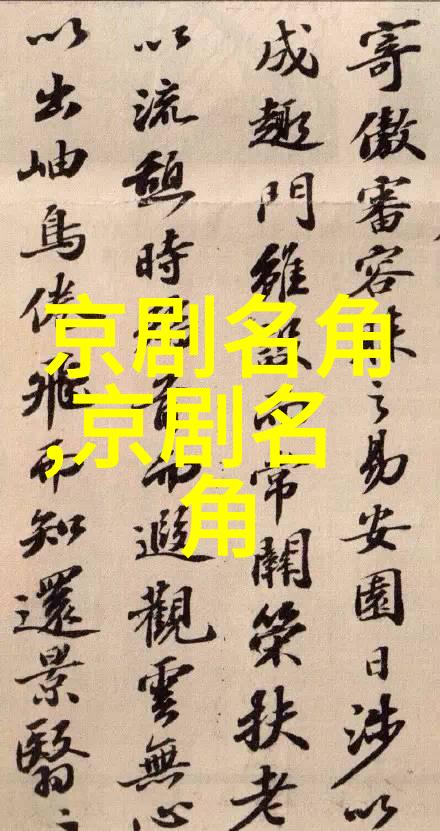 寄傲審容膝之易安園日涉以
成趣門雖設而常關策扶老
以流憩時首而遐觀雲無心
以出岫鳥倦飛而知還景翳
京剧名角
,京剧名
角